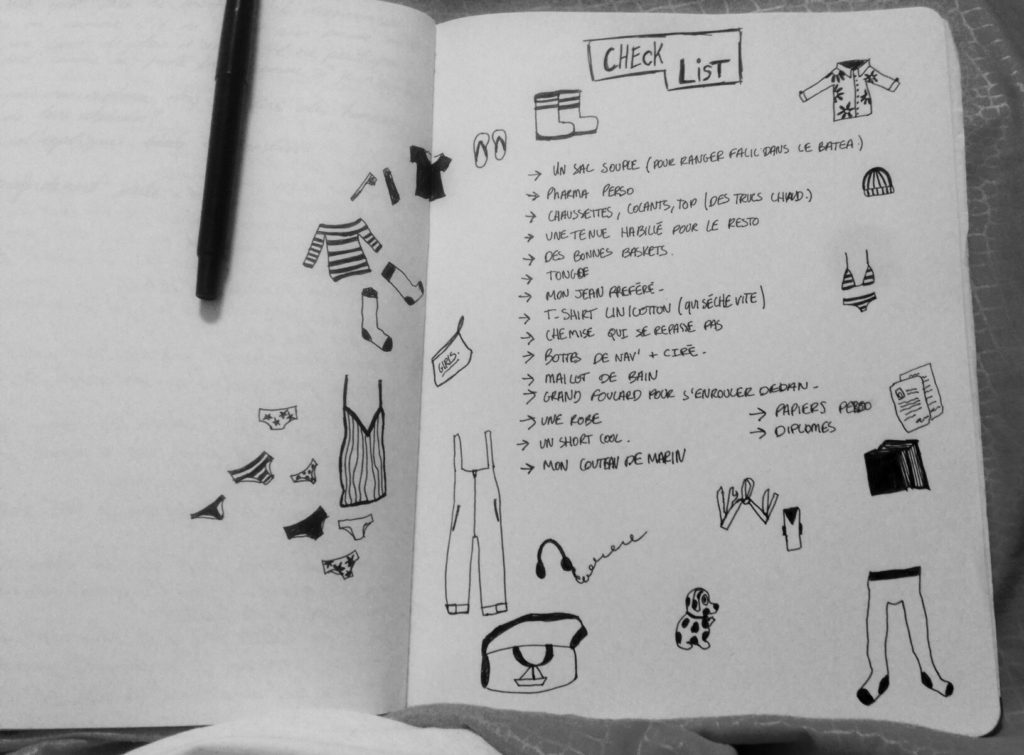 CHECK LIST
→ UN SAC SOUPLE (POUR RANGER FACIL' DANS LE BATEA.)
→ PHARMA PERSO
→ CHAUSSETTES, COLANTS, TOP (DES TRUCS CHAUD.)
→ UNE TENUE HABILLÉ POUR LE RESTO
→ DES BONNES BASKETS.
→ TONGUE
→ MON JEAN PREFÉRÉ -
→ T-SHIRT LIN/COTTON (QUI SÉCHE VITE)
→ CHEMISE QUI SE REPASSE PAS
→ BOTTES DE NAV' + CIRÉ -
→ MAILLOT DE BAIN
→ GRAND FOULARD POUR S'ENROULER DEDAN -
→ UNE ROBE
→ UN SHORT COOL.
→ MON COUTEAU DE MARIN
→ PAPIERS PERSO
→ DIPLOMES
GIRLS.